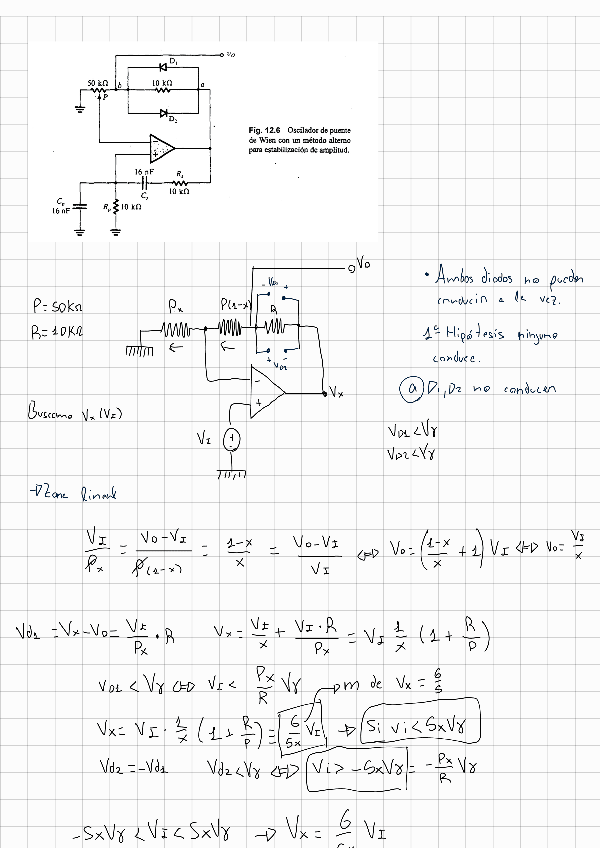 Vo
D₁
50 kΩ
b
10 kΩ
a
P
D₂
Fig. 12.6 Oscilador de puente
de Wien con un método alterno
para estabilización de amplitud.
16 nF
R_s
C_s
10 kΩ
C_p
16 nF
R_p
10 kΩ
Vo
P = 50KΩ
R = 10KΩ
Px
P(1-x)
R
- V_D2 +
+ V_D1 -
-
+
Vx
V_I
Buscamo Vx (V_I)
• Ambos diodos no pueden
conducir a la vez.
1ª Hipótesis ninguno
conduce.
a D₁, D₂ no conducen
V_D1 < Vγ
V_D2 < Vγ
→ Zona lineal
V_I / Px = (Vo - V_I) / P(1-x) = (1-x)/x = (Vo - V_I)/V_I ⟺ Vo = ((1-x)/x + 1) V_I ⟺ Vo = V_I/x
Vd₁ = Vx - Vo = V_I/Px · R Vx = V_I/x + V_I·R/Px = V_I 1/x (1 + R/P)
V_D1 < Vγ ⟺ V_I < Px/R Vγ → m de Vx = 6/5
Vx = V_I · 1/x (1 + R/P) = 6/5x V_I → Si vi < 5xVγ
Vd₂ = -Vd₁ Vd₂ < Vγ ⟺ Vi > -5xVγ = -Px/R Vγ
-5xVγ < V_I < 5xVγ → Vx = 6/5x V_I